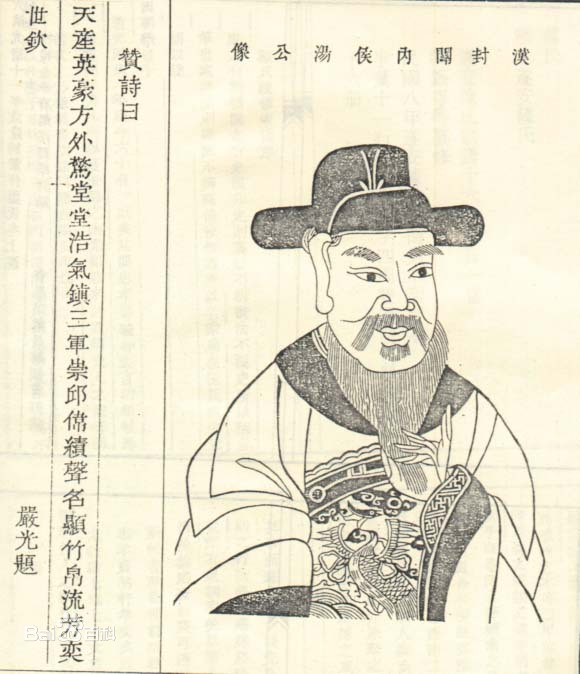 漢封關内侯湯公像
贊詩曰
天産英豪方外驚堂堂浩氣鎭三軍崇邱績聲名顯竹帛流芳奕
世欽
嚴光題
Bai百科